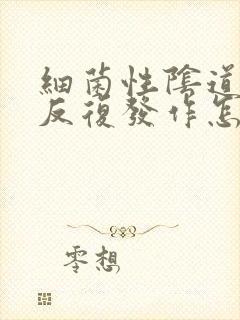 細菌性陰道
反復發作怎
零想